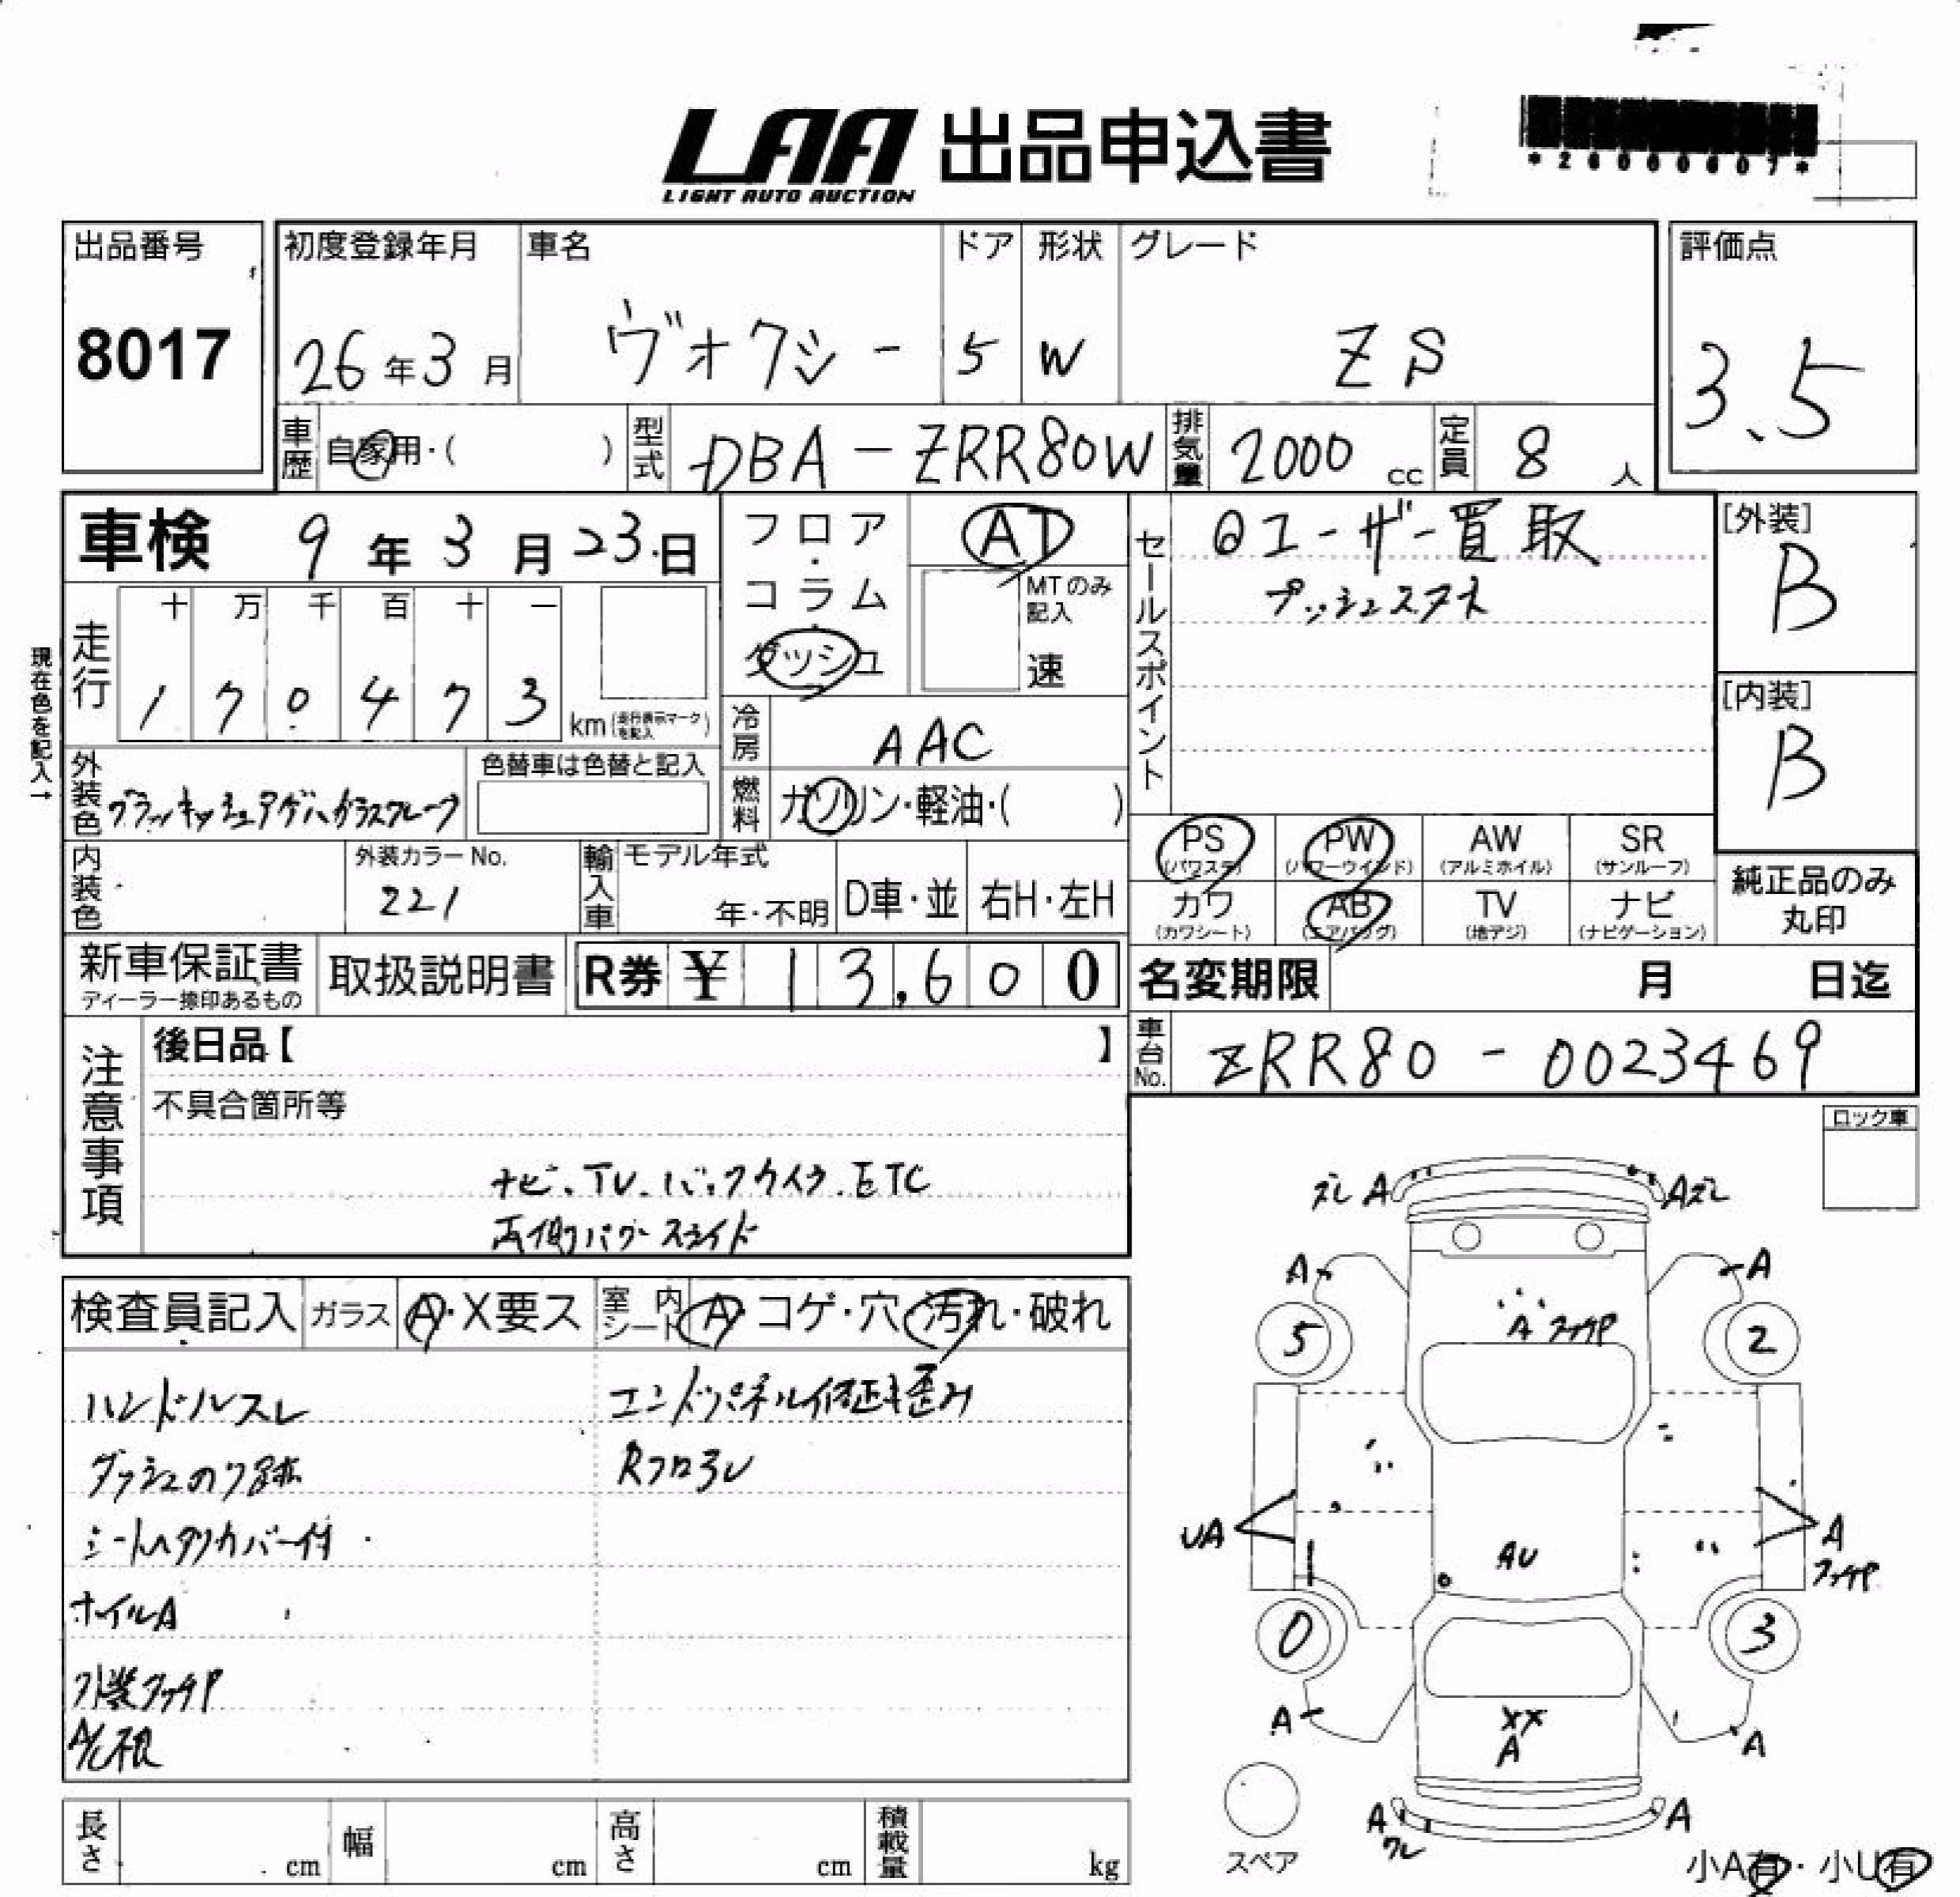 LAA 出品申込書
LIGHT AUTO AUCTION
*26000607*
出品番号
8017
初度登録年月
26年3月
車名
ヴォクシー
ドア
5
形状
W
グレード
ZS
評価点
3.5
車歴 自家用・( )
型式 DBA-ZRR80W
排気量 2000 cc
定員 8 人
車検 9年3月23日
現在色を記入→
走行
十 万 千 百 十 一
1 7 0 4 7 3 km(走行表示マークを記入)
フロア・コラム・ダッシュ
AT
MTのみ記入
速
冷房 AAC
燃料 ガソリン・軽油・( )
セールスポイント
ユーザー買取
プッシュスタ
[外装]
B
[内装]
B
外装色
色替車は色替と記入
内装色
外装カラーNo.
221
輸入車
モデル年式
年・不明
D車・並
右H・左H
PS (パワステ)
PW (パワーウインド)
AW (アルミホイル)
SR (サンルーフ)
カワ (カワシート)
AB (エアバッグ)
TV (地デジ)
ナビ (ナビゲーション)
純正品のみ丸印
新車保証書
ディーラー捺印あるもの
取扱説明書
R券 ¥ 13,600
名変期限 月 日迄
車台No. ZRR80-0023469
注意事項
後日品【 】
不具合箇所等
ナビ.TV.バックカメラ.ETC
両側パワースライド
ロック車
検査員記入
ガラス A・X要ス
室内シート A・コゲ・穴・汚れ・破れ
ハンドルスレ
ダッシュのリ跡
シートハタリカバー付
ホイルA
外装タッチP
A/C不良
エンドパネル修正キ歪み
Rフロアズレ
ズレ A
Aズレ
A
A
5
2
A タッチP
UA
AU
A
タッチP
0
3
A
XX
A
A
A
ワレ
A
スペア
小A有・小U有
長さ cm
幅 cm
高さ cm
積載量 kg